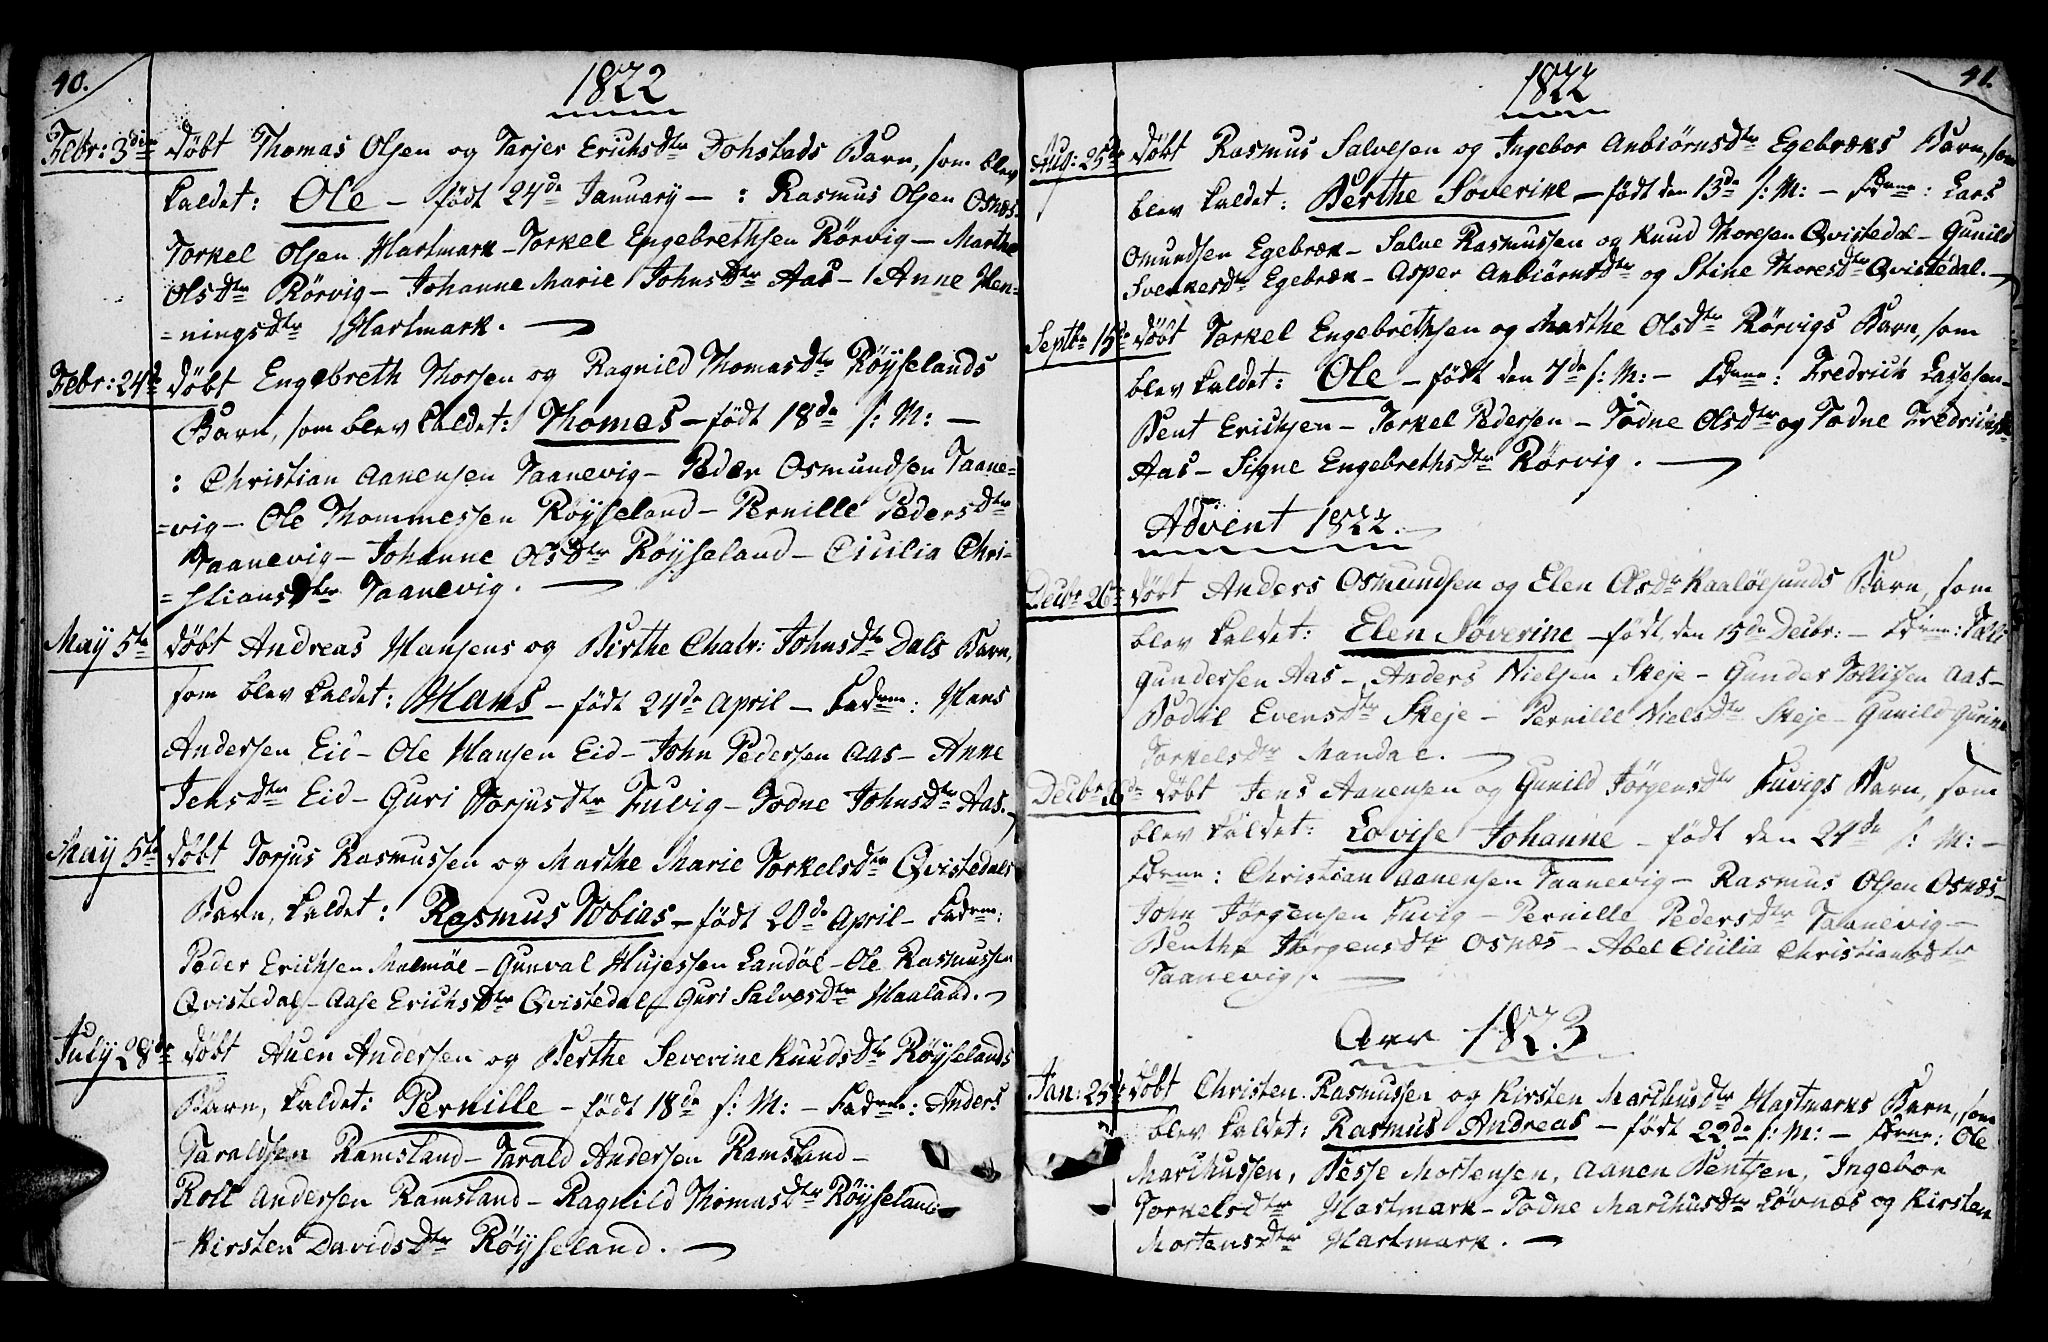 40.
1822
Febr: 3die Døbt Thomas Olsen og Tarjer ErichsDtr Dohstads Barn, som blev
kaldet: Ole - født 24de January - : Rasmus Olsen Osnæs-
Torkel Olsen Hartmark - Torkel Engebrethsen Rörvig - Marthe
OlsDtr Rörvig - Johanne Marie JohnsDtr Aas - Anne Hen=
=ningsDtr Hartmark.
Febr: 24de Døbt Engebreth Thorsen og Ragnild ThomasDtr Röysselands
Barn, som blev kaldet: Thomas - født 18de s: M: -
: Christian Aanensen Taanevig - Peder Osmundsen Taane=
=vig - Ole Thommessen Röysseland - Pernille PedersDtr
Taanevig - Johanne OlsDtr Röysseland - Cicilia Chri=
=stiansDtr Taanevig.
May 5te Døbt Andreas Hansens og Birthe Chatr: JohnsDtr Dals Barn,
som blev kaldet: Hans - født 24de April - Fadrne: Hans
Andersen Eid - Ole Hansen Eid - John Pedersen Aas - Anne
JensDtr Eid - Guri TorjusDtr Fuvig - Todne JohnsDtr Aas.
May 5te Døbt Torjus Rasmussen og Marthe Marie TorkelsDtr Qvistedals
Barn, kaldet: Rasmus Tobias - født 20de April - Fadrne:
Peder Erichsen Malmöe - Gunval Hujessen Landöe - Ole Rasmussen
Qvistedal - Aase ErichsDtr Qvistedal - Guri SalvesDtr Haaland.
July 28de Døbt Auen Andersen og Berthe Severine KnudsDtr Röysselands
Barn, kaldet: Pernille - født 18de s: M: - Fadrne: Anders
Taraldsen Ramsland - Tarald Andersen Ramsland -
Roll Andersen Ramsland - Ragnild ThomasDtr Röysseland
- Kirsten DavidsDtr Röysseland.
41.
1822
Aug: 25de Døbt Rasmus Salvesen og Ingebor AnbiörnsDtr Egebræks Barn, som
blev kaldet: Berthe Söverine - født den 13de s: M: - Fdrne: Lars
Omundsen Egebræk - Salve Rasmussen og Knud Thoresen Qvistedal - Gunild
SvenkesDtr Egebræk - Asper AnbiörnsDtr og Stine ThoresDtr Qvistedal.
Septbr 15de Døbt Torkel Engebrethsen og Marthe OlsDtr Rörvigs Barn, som
blev kaldet: Ole - født den 7de s: M: - Fdrne: Fredrich Lassesen -
Bent Erichsen - Torkel Pedersen - Todne OlsDtr og Todne FredrichsDtr
Aas - Signe EngebrethsDtr Rörvig.
Advent 1822.
Decbr 26de Døbt Anders Osmundsen og Elen OlsDr Kaalöesunds Barn, som
blev kaldet: Elen Söverine - født den 15de Decbr: - Fdrne: Tolli
Gundersen Aas - Anders Nielsen Skeje - Gunder Tollissen Aas -
Bodil EvensDtr Skeje - Pernille NielsDtr Skeje - Gunild Gurine
TorkelsDtr Mandal.
Decbr 26de Døbt Jens Aanensen og Gunild JörgensDtr Fuvigs Barn, som
blev kaldet: Lovise Johanne - født den 24de s: M: -
Fdrne: Christian Aanensen Taanevig - Rasmus Olsen Osnæs -
John Jörgensen Fuvig - Pernille PedersDtr Taanevig -
Benthe JörgensDtr Osnæs - Abel Cicilia ChristiansDtr
Taanevig.
Aar 1823
Jan: 25de Døbt Christen Rasmussen og Kirsten MarchusDtr Hartmarks Barn, som
blev kaldet: Rasmus Andreas - født 22de s: M: - Fdrne: Ole
Marchussen, Besse Mortensen, Aanen Bentsen, Ingebor
TorkelsDtr Hartmark - Todne MarchusDtr Lövnæs og Kirsten
MortensDtr Hartmark.